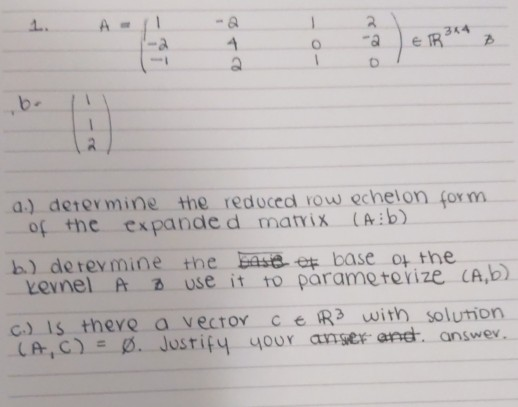 1. A = ( 1 -2 1 2
-2 4 0 -2 ) ∈ ℝ³ˣ⁴ &
-1 2 1 0
b= ( 1
1
2 )
a.) determine the reduced row echelon form
of the expanded matrix (A⋮b)
b.) determine the base of base of the
kernel A & use it to parameterize (A,b)
c.) Is there a vector c ∈ ℝ³ with solution
(A,C) = Ø. Justify your anser and. answer.